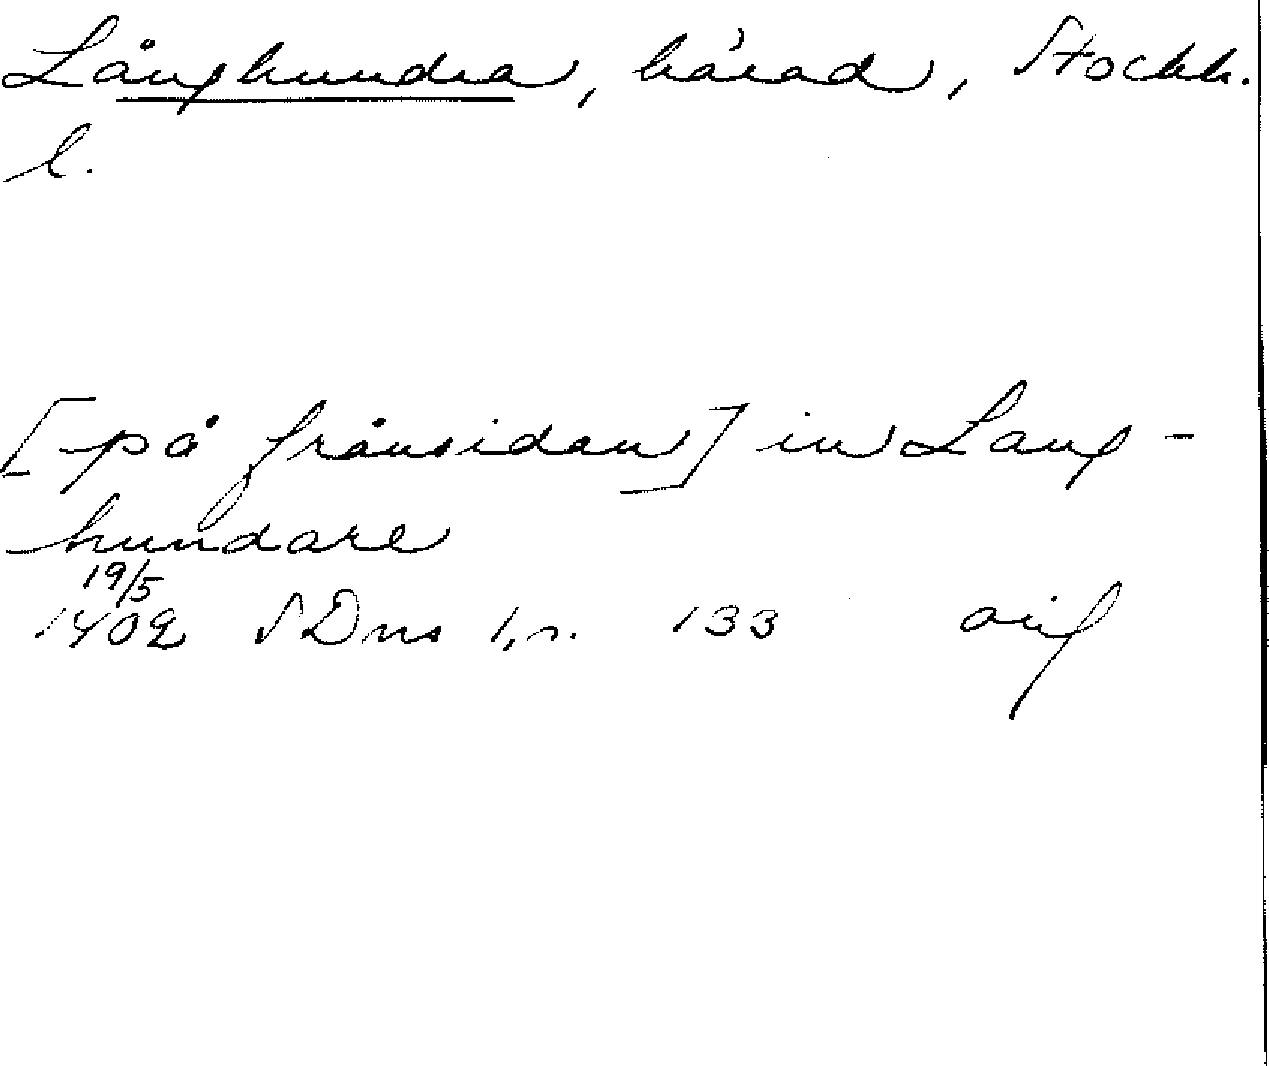 Långhundra, härad, Stockh.
l.
[på frånsidan] in Lang-
hundare
19/5
1402 SDns 1, s. 133 orig